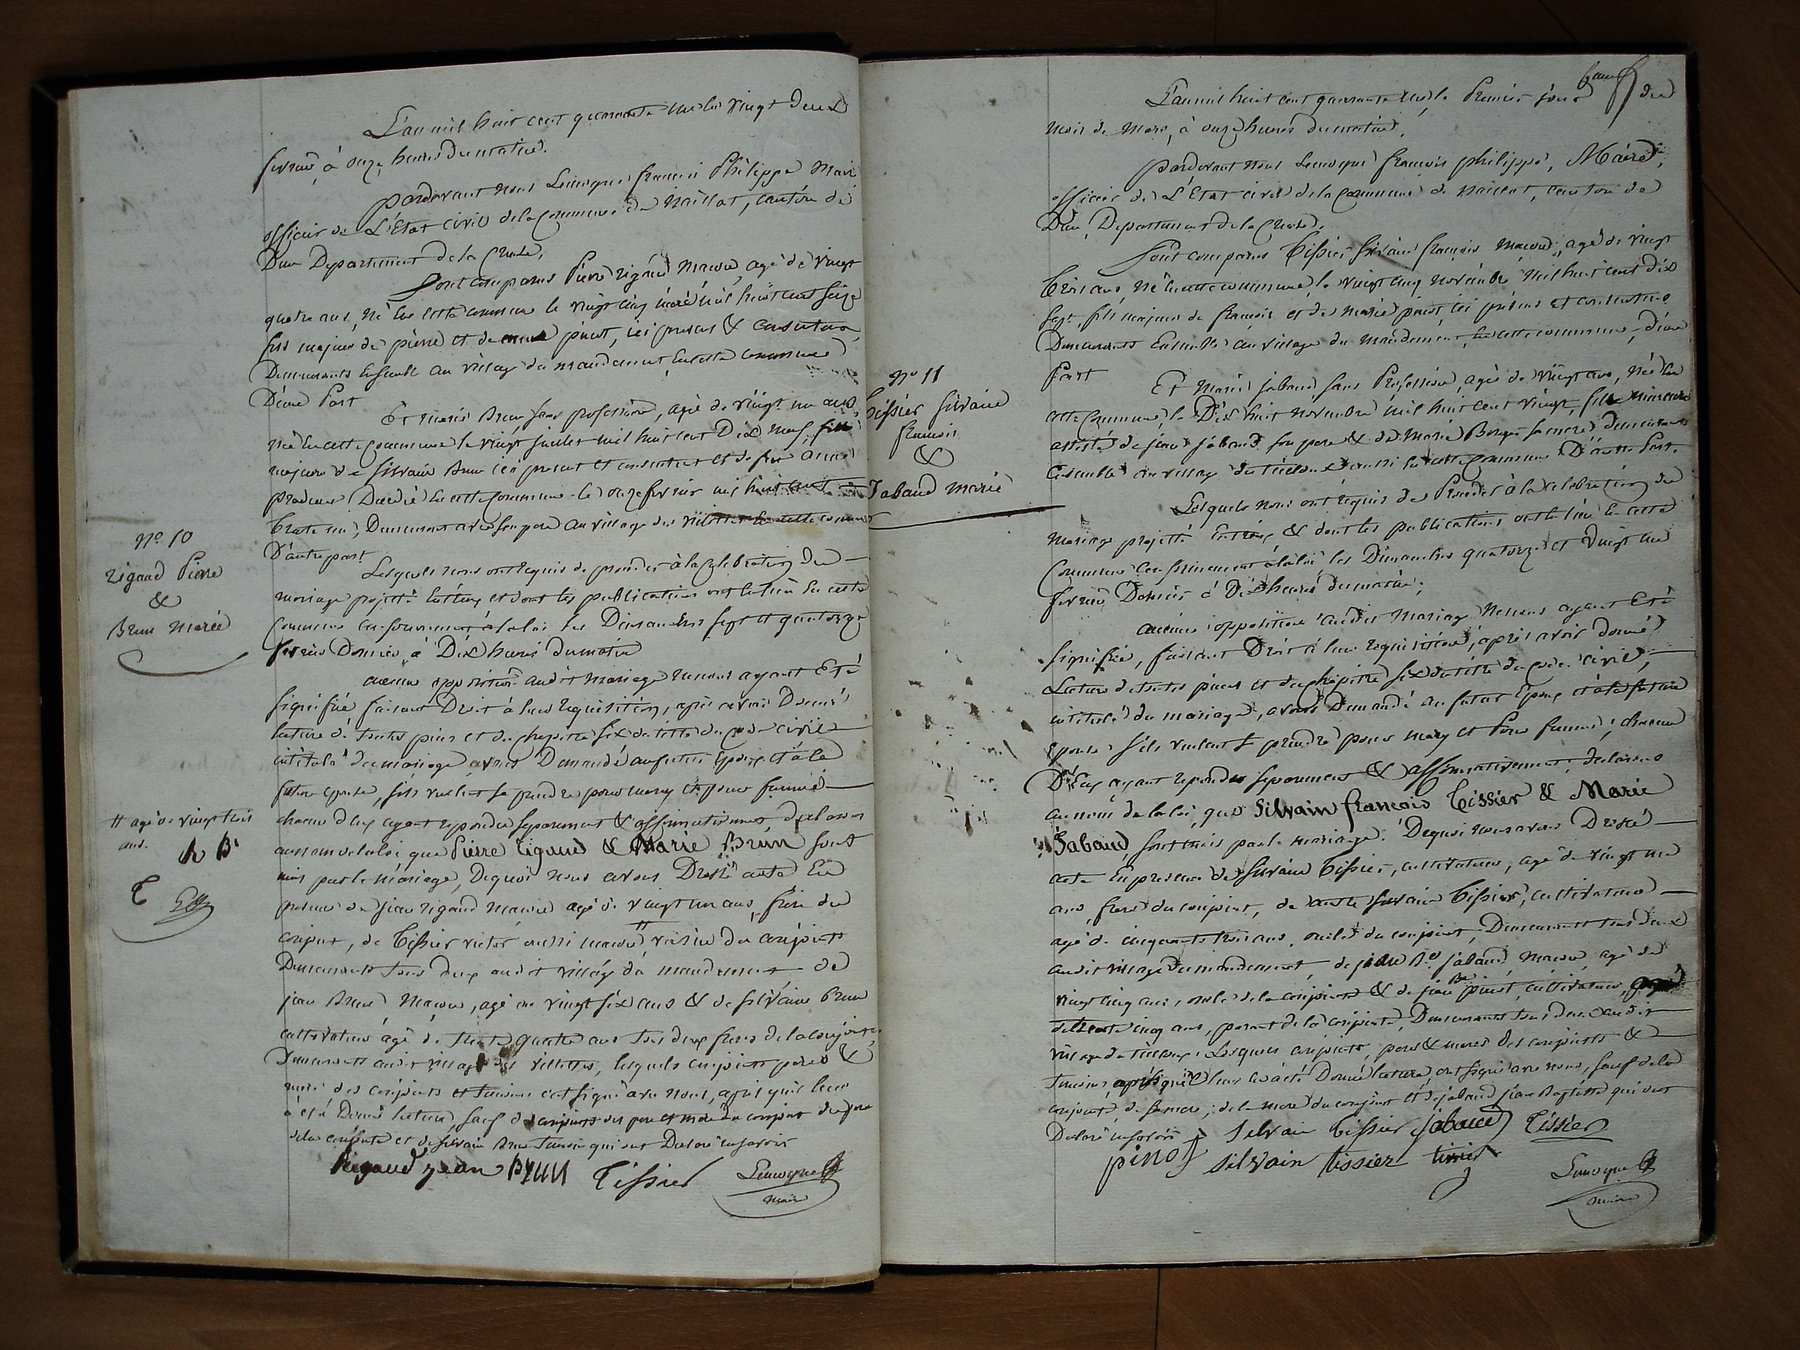 L'an mil huit cent quarante un le vingt deux
fevrier, à onze heures du matin.
pardevant nous Lemoyne françois Philippe Maire
officier de L'Etat civil de la Commune de Naillat, canton de
Dun Departement de la Creuse,
Sont comparus Pierre rigaud Macon, agé de vingt
quatre ans, né en cette commune le vingt cinq mars mil huit cent seize
fils majeur de pierre et de pinot, ici presens & consentans
Demeurants Ensemble au village du mandement En cette commune
D'une Part
Et marie Brun, sans profession, agée de vingt un ans,
née En cette Commune le vingt juillet mil huit cent Dix neuf, fille
majeure de Silvain Brun ici present et consentant et de feue anne
Decedée En cette Commune le onze fevrier mil huit cent
trente un, Demeurant avec son pere au village des villettes En cette commune
D'autre part
Lesquels nous ont requis de proceder à la celebration du
mariage projetté Entr'eux et dont les publications ont eu lieu En cette
Commune Conformement à la loi les Dimanches sept et quatorze
fevrier Dernier, à Dix heures du matin
aucune opposition audit Mariage ne nous ayant Eté
signifiée faisant Droit à leur requisition, après avoir Donné
lecture de toutes pieces et du chapitre six du titre du code civil
intitulé du mariage, avons Demandé au futur Epoux et à la
future epouse, s'ils veulent se prendre pour mary et pour femme
chacun d'eux ayant repondu separement & affirmativement, declarons
au nom de la loi que Pierre rigaud & Marie Brun sont
unis par le mariage, De quoi nous avons Dressé acte En
presence de jean rigaud macon agé de vingt un ans, frère du
conjoint, de Tissier victor aussi macon # voisin du conjoint
Demeurants tous deux audit village du mandement de
jean Brun Macon, agé de vingt six ans & de silvain Brun
cultivateur agé de trente quatre ans tous deux freres de la conjointe,
Demeurants audit village des villettes, lesquels conjoints peres &
mere des conjoints et temoins ont signé avec nous, après qu'il leur
a été Donné lecture sauf des conjoints des pere et mere du conjoint du pere
de la conjointe et de silvain Brun temoin qui ont Declaré ne savoir
Rigaud jean Brun Tissier Lemoyne
maire
N° 10
rigaud Pierre
&
Brun Marie
# agé de vingt trois
ans.
R B
T
Beau
L'an mil huit cent quarante un, le Premier jour du
mois de Mars, à onze heures du matin,
pardevant nous Lemoyne françois philippe, Maire
officier de L'Etat civil de la Commune de Naillat, canton de
Dun, Departement de la Creuse,
Sont comparus Tissier silvain françois macon, agé de vingt
trois ans, né En cette commune, le vingt cinq novembre mil huit cent dix
sept, fils majeur de françois et de marie pinot ici presens et consentans
Demeurants Ensemble au village du mandement, En cette commune, D'une
Part
Et Marie jabaud sans Profession, agée de vingt ans, née En
cette Commune, le Dix huit novembre mil huit cent vingt, fille mineure
assistée de jean jabaud son pere & de Marie sa mere demeurants
Ensemble au village du aussi En cette Commune D'autre Part.
Lesquels nous ont requis de Proceder à la celebration du
mariage projetté Entr'eux & dont les publications ont eu lieu En cette
Commune Conformement à la loi les Dimanches quatorze et vingt un
fevrier Dernier à Dix heures du matin,
aucune opposition audit Mariage ne nous ayant Eté
signifiée, faisant Droit à leur requisition, après avoir donné
Lecture de toutes pieces et du chapitre six du titre du code civil,
intitulé du mariage, avons Demandé au futur Epoux et à la future
epouse s'ils veulent se prendre pour mary et Pour femme, chacun
D'eux ayant repondu separement & affirmativement, declarons
au nom de la loi, que Silvain françois Tissier & Marie
Jabaud sont unis par le mariage. De quoi nous avons Dressé
acte En presence de silvain Tissier, cultivateur, agé de vingt un
ans, frere du conjoint, de autre silvain Tissier, cultivateur
agé de cinquante trois ans, oncle du conjoint, Demeurants tous deux
audit village du mandement, de jean B.te jabaud macon, agé de
vingt cinq ans, oncle de la conjointe & de jean pinot, cultivateur, agé
de trente cinq ans, parent de la conjointe, Demeurants tous deux audit
village du Lesquels conjoints, peres & meres des conjoints &
temoins après qu'il leur en a été Donné lecture, ont signé avec nous, sauf de la
conjointe de sa mere, de la mere du conjoint et de jabaud jean Baptiste qui ont
Declaré ne savoir Silvain Tissier Jabaud Tissier
pinot silvain tissier
Lemoyne
maire
N° 11
Tissier silvain
francois
&
Jabaud marie